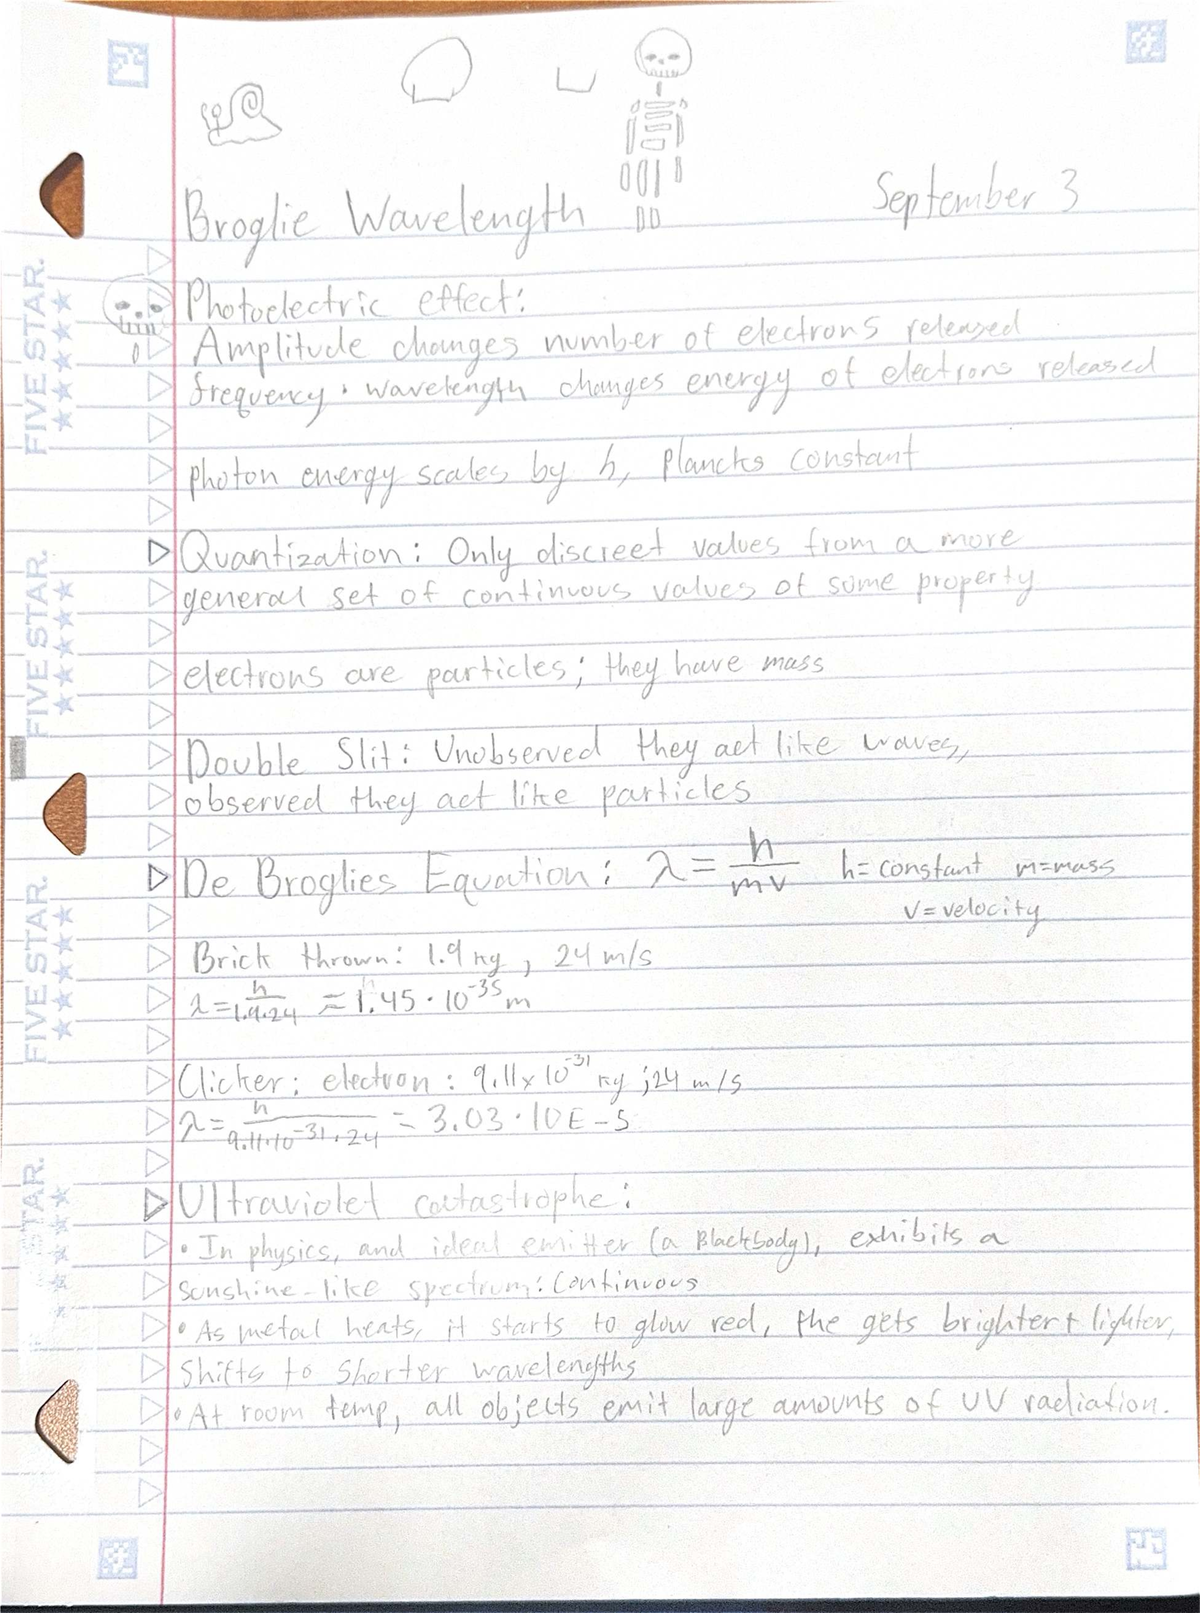 Broglie Wavelength
September 3
Photoelectric effect:
Amplitude changes number of electrons released
frequency · wavelength changes energy of electrons released
photon energy scales by h, plancks constant
Quantization: Only discreet values from a more
general set of continuous values of some property
electrons are particles; they have mass
Double Slit: Unobserved they act like waves,
observed they act like particles
De Broglies Equation: λ = h/mv h=constant m=mass
v=velocity
Brick thrown: 1.9 kg, 24 m/s
λ = h/1.9·24 ≈ 1.45 · 10^-35 m
Clicker: electron: 9.11x10^-31 kg ; 24 m/s
λ = h/9.11·10^-31·24 = 3.03 · 10E-5
Ultraviolet catastrophe:
• In physics, and ideal emitter (a Blackbody), exhibits a
sunshine-like spectrum: Continuous
• As metal heats, it starts to glow red, the gets brighter + lighter,
Shifts to shorter wavelengths
• At room temp, all objects emit large amounts of UV radiation.
FIVE STAR.
FIVE STAR.
FIVE STAR.
STAR.